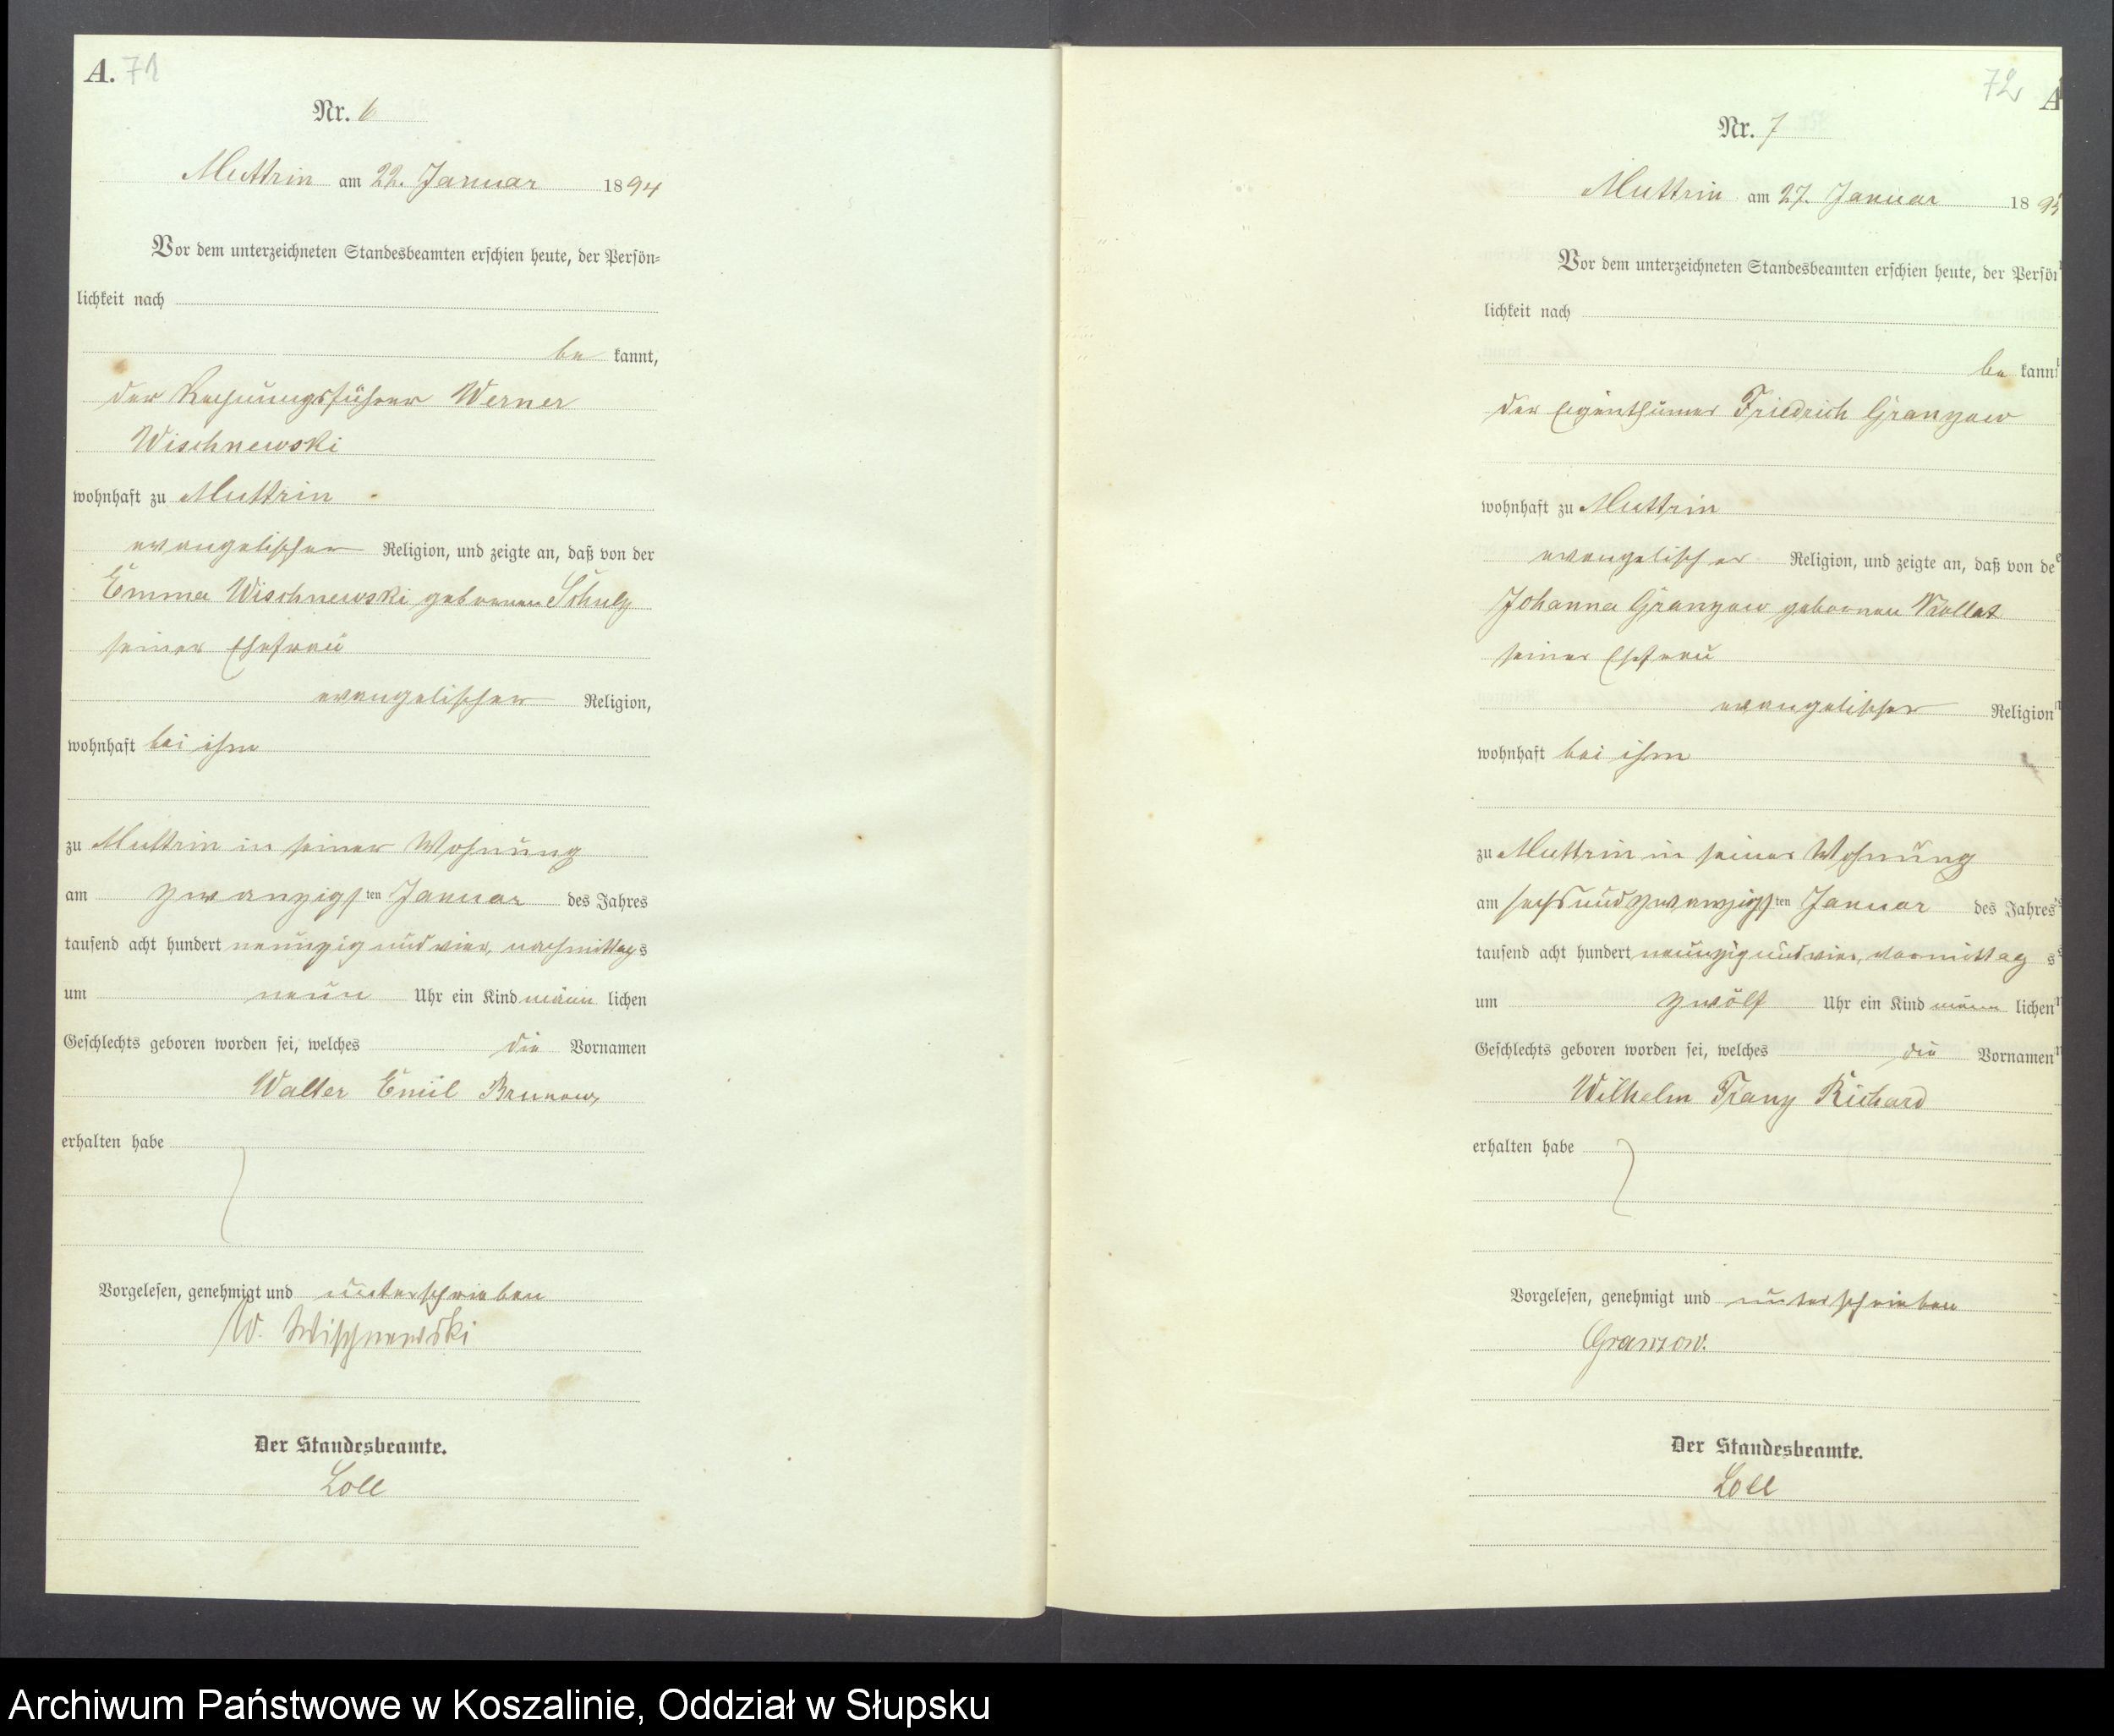 A. 71
Nr. 6
Muttrin am 22. Januar 1894
Vor dem unterzeichneten Standesbeamten erschien heute, der Persön=
lichkeit nach
be kannt,
der Rechnungsführer Werner
Wischnewski
wohnhaft zu Muttrin
evangelischer Religion, und zeigte an, daß von der
Emma Wischnewski geborenen Schulz
seiner Ehefrau
evangelischer Religion,
wohnhaft bei ihm
zu Muttrin in seiner Wohnung
am zwanzigsten Januar des Jahres
tausend acht hundert neunzig und vier, nachmittags
um neun Uhr ein Kind männlichen
Geschlechts geboren worden sei, welches die Vornamen
Walter Emil
erhalten habe
Vorgelesen, genehmigt und unterschrieben
W. Wischnewski
Der Standesbeamte.
Loll
72 A
Nr. 7
Muttrin am 27. Januar 18
Vor dem unterzeichneten Standesbeamten erschien heute, der Persön
lichkeit nach
be kannt
der Eigenthümer Friedrich Granzow
wohnhaft zu Muttrin
evangelischer Religion, und zeigte an, daß von de
Johanna Granzow geborenen Kollat
seiner Ehefrau
evangelischer Religion
wohnhaft bei ihm
zu Muttrin in seiner Wohnung
am sechsundzwanzigsten Januar des Jahres
tausend acht hundert neunzig und vier, vormittags
um zwölf Uhr ein Kind männlichen
Geschlechts geboren worden sei, welches die Vornamen
Wilhelm Franz Richard
erhalten habe
Vorgelesen, genehmigt und unterschrieben
Granzow.
Der Standesbeamte.
Loll
Archiwum Państwowe w Koszalinie, Oddział w Słupsku